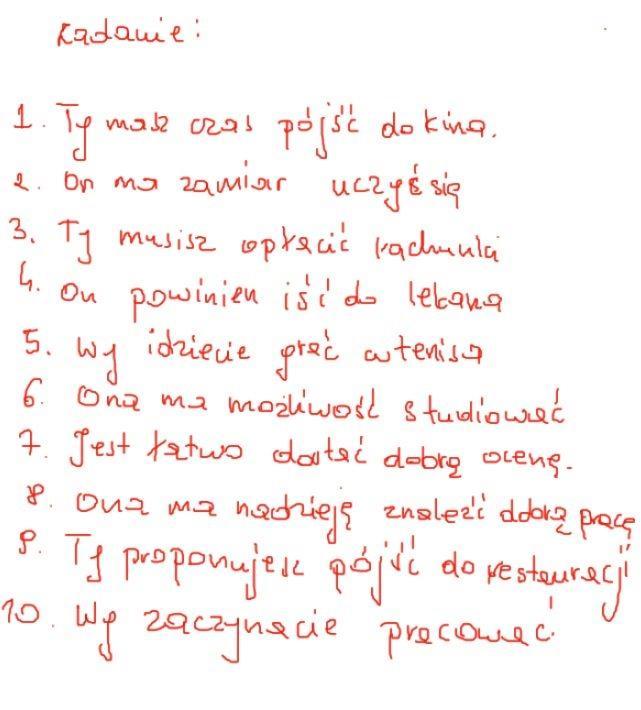 zadanie:
1. Ty masz czas pójść do kina.
2. On ma zamiar uczyć się
3. Ty musisz opłacić rachunki
4. On powinien iść do lekarza
5. Wy idziecie grać w tenisa
6. Ona ma możliwość studiować
7. Jest łatwo dostać dobrą ocenę.
8. Ona ma nadzieję znaleźć dobrą pracę
9. Ty proponujesz pójść do restauracji
10. Wy zaczynacie pracować.